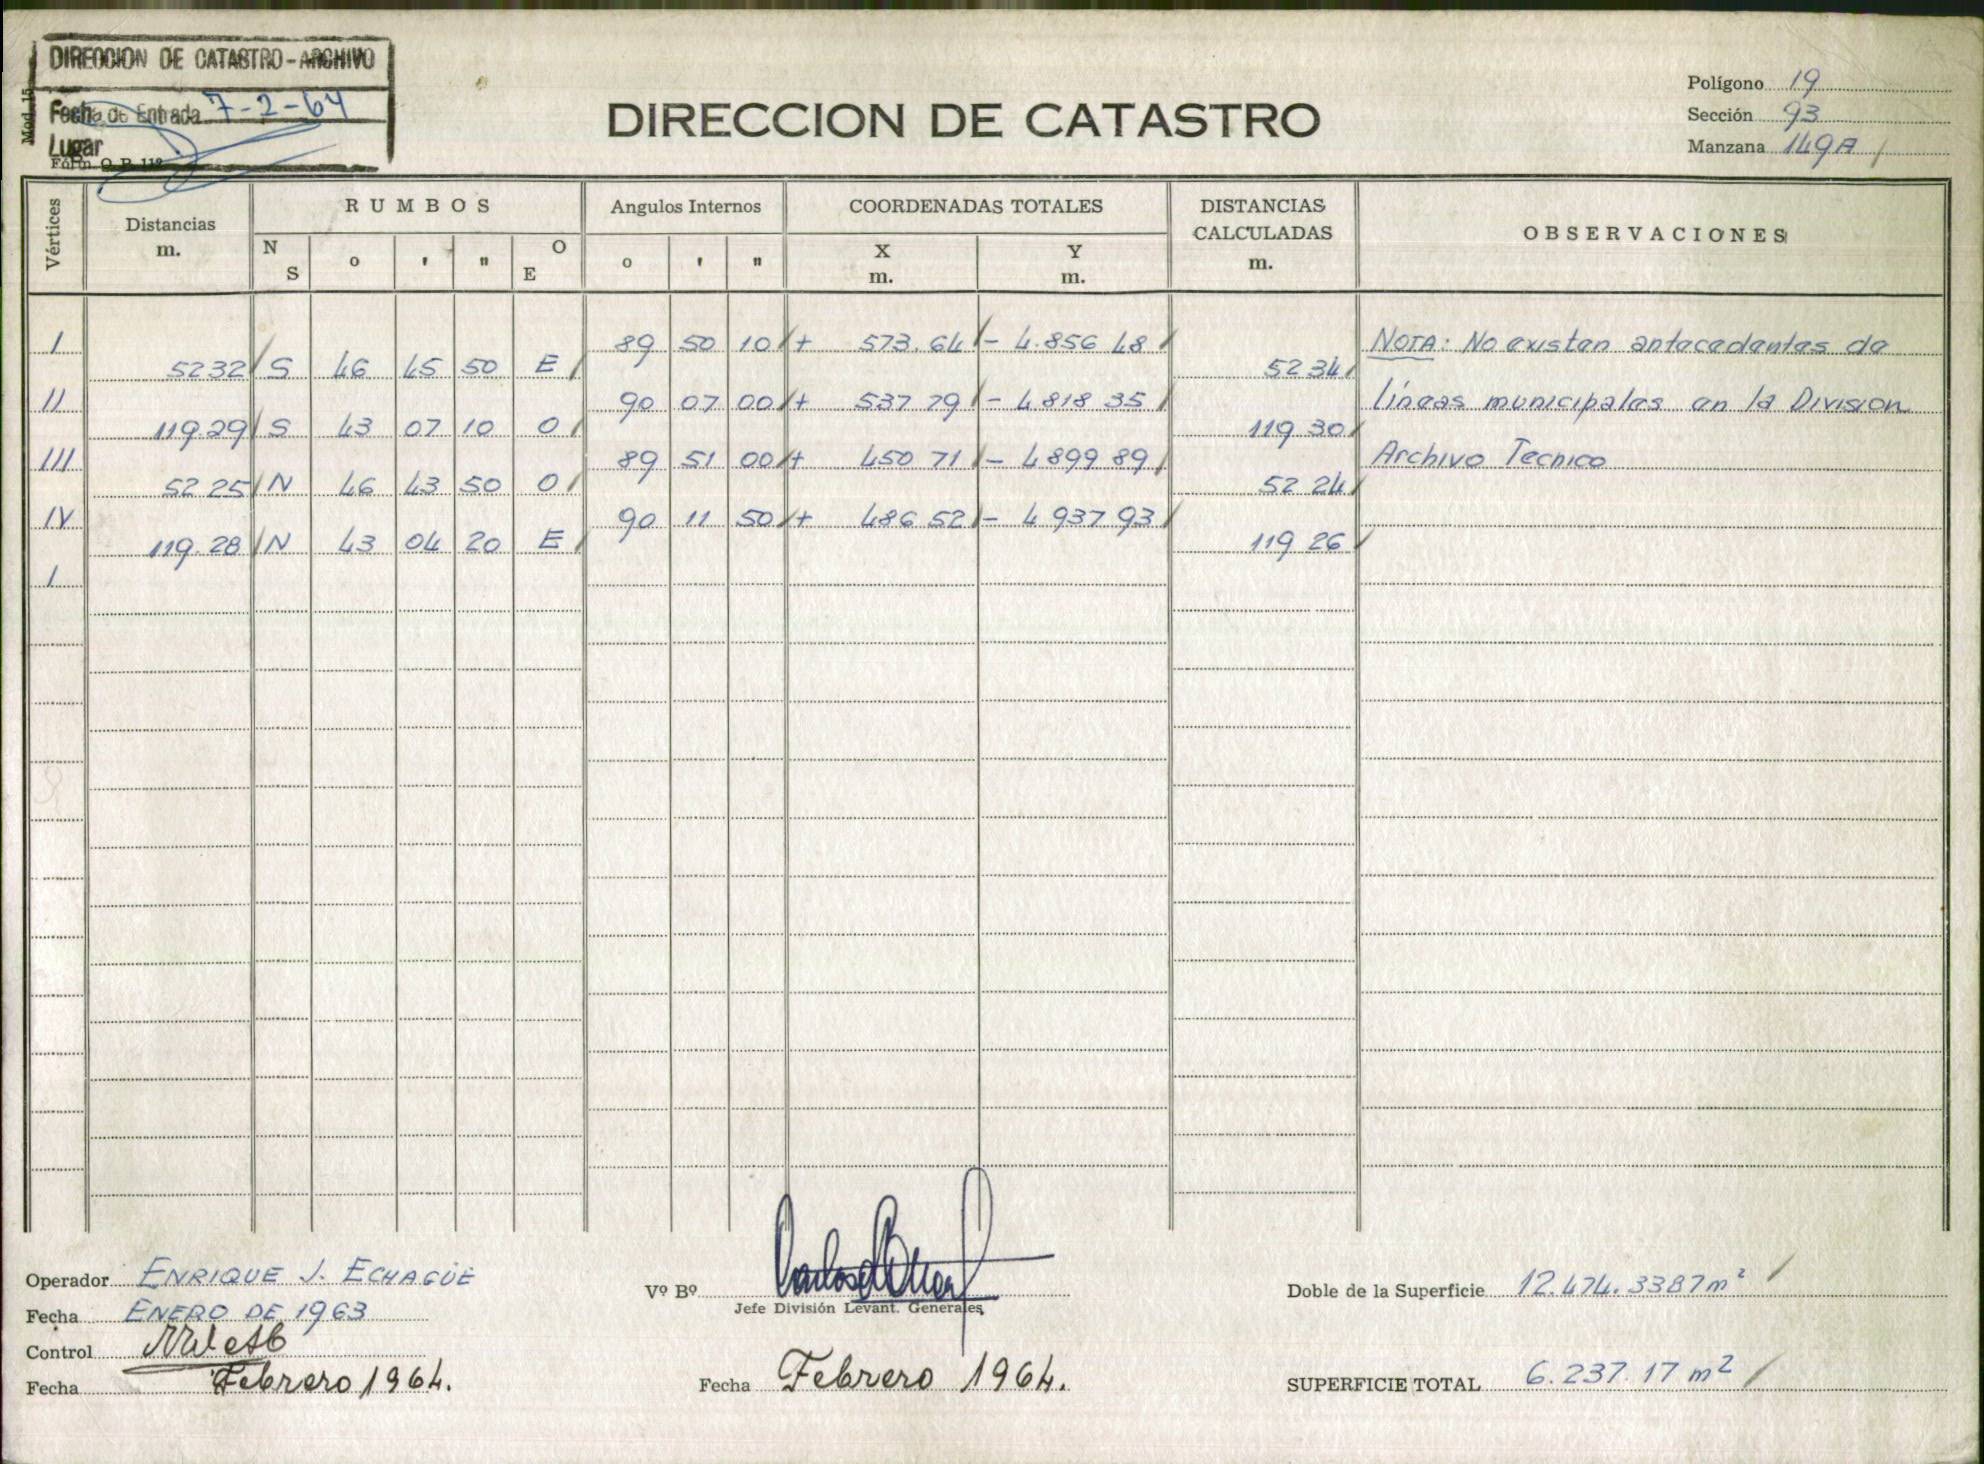 DIRECCION DE CATASTRO-ARCHIVO
Fecha de Entrada 7-2-64
Lugar
Mod. 15
Fórm. O. P. 118
DIRECCION DE CATASTRO
Polígono 19
Sección 93
Manzana 149A
Vértices
Distancias
m.
RUMBOS
N
S
o
'
"
O
E
Angulos Internos
o
'
"
COORDENADAS TOTALES
X
m.
Y
m.
DISTANCIAS
CALCULADAS
m.
OBSERVACIONES
I 89 50 10 + 573.64 - 4.856 48
52 32 S 46 45 50 E 52 34
II 90 07 00 + 537 79 - 4818 35
119.29 S 43 07 10 O 119 30
III 89 51 00 + 450 71 - 4899 89
52 25 N 46 43 50 O 52 24
IV 90 11 50 + 486 52 - 4 937 93
119.28 N 43 04 20 E 119 26
I
NOTA: No existen antecedentes de
líneas municipales en la Division
Archivo Tecnico
Operador ENRIQUE J. ECHAGÜE
Fecha ENERO DE 1963
Control
Fecha Febrero 1964.
Vº Bº
Jefe División Levant. Generales
Fecha Febrero 1964.
Doble de la Superficie 12.474.3387 m²
SUPERFICIE TOTAL 6.237.17 m²